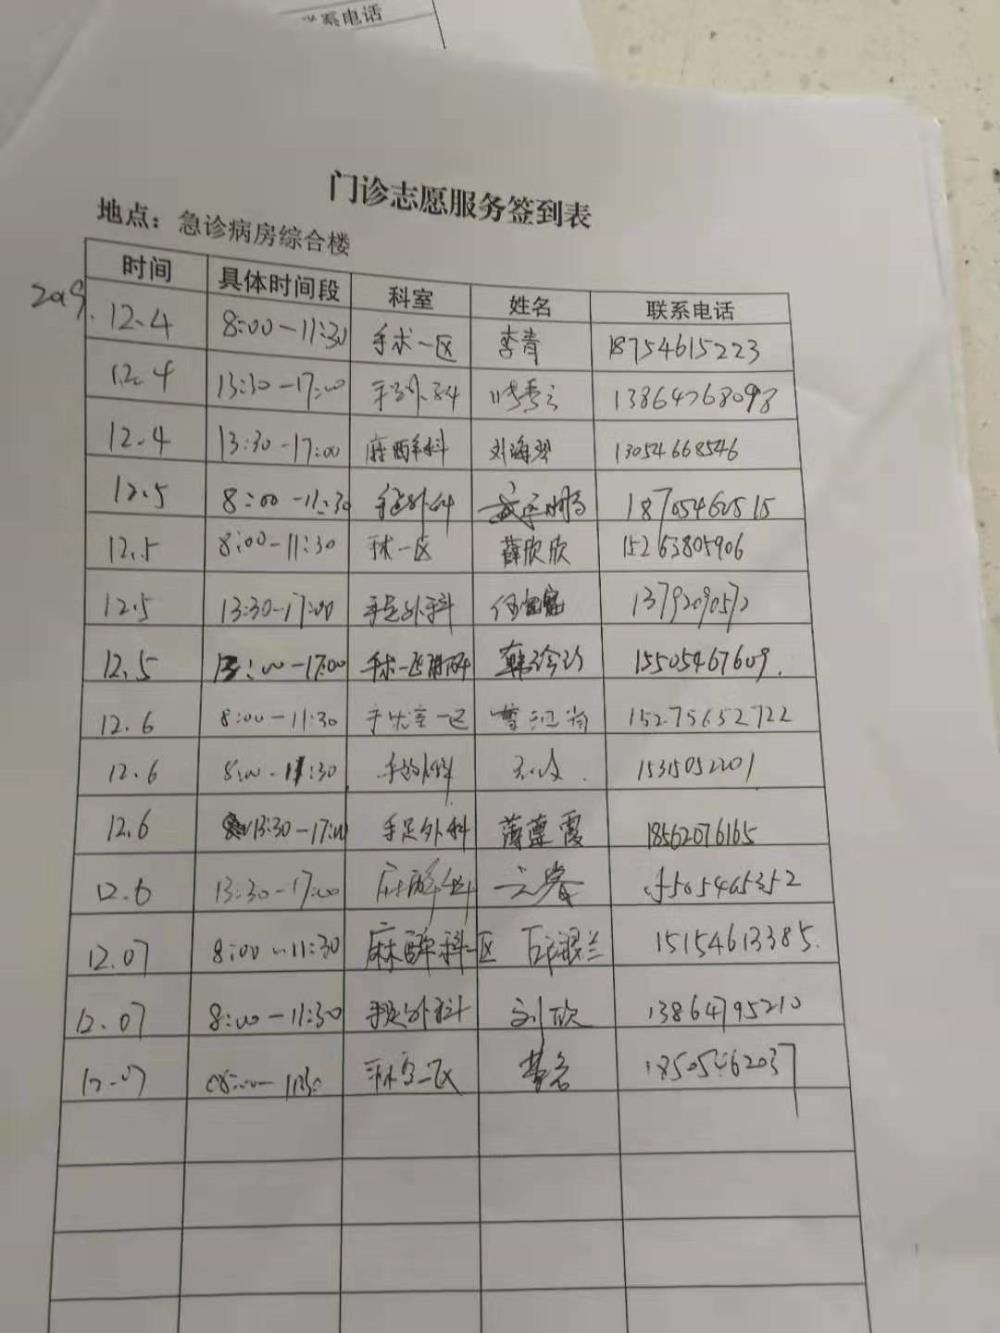 联系电话
门诊志愿服务签到表
地点：急诊病房综合楼
时间 具体时间段 科室 姓名 联系电话
2019. 12.4 8:00-11:30 手术一区 李青 18754615223
12.4 13:30-17:00 手外科 13864768098
12.4 13:30-17:00 麻醉科 刘海翠 13054668546
12.5 8:00-11:30 手足外科 18705462515
12.5 8:00-11:30 手术一区 薛欣欣 15263805906
12.5 13:30-17:00 手足外科 13792090572
12.5 13:00-17:00 手术一区 韩 15505467609.
12.6 8:00-11:30 手术室一区 曹 15275652722
12.6 8:00-11:30 手足外科 15315052201
12.6 13:30-17:00 手足外科 薄莲霞 18562076165
12.6 13:30-17:00 麻醉科 15505465352
12.07 8:00-11:30 麻醉科一区 15154613385.
12.07 8:00-11:30 手足外科 刘欣 13864795210
12.07 08:00-11:30 手术室一区 18505462037